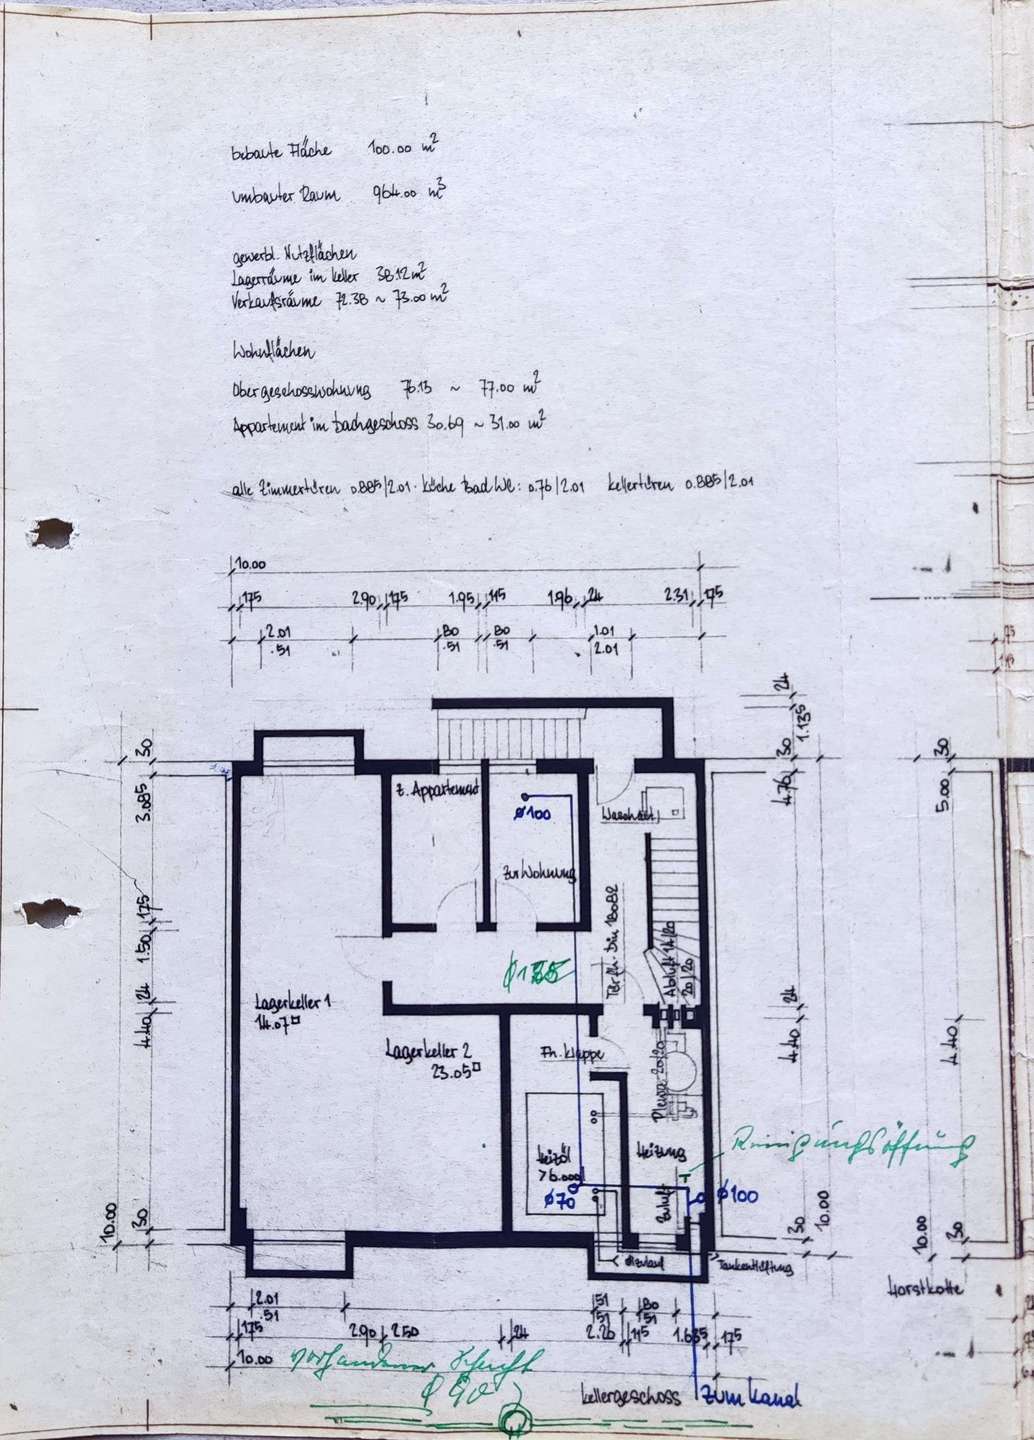 bebaute Fläche 100.00 m²
umbauter Raum 964.00 m³
gewerbl. Nutzflächen
Lagerräume im Keller 38.12 m²
Verkaufsräume 72.38 ~ 73.00 m²
Wohnflächen
Obergeschosswohnung 76.13 ~ 77.00 m²
Appartement im Dachgeschoss 30.69 ~ 31.00 m²
alle Zimmertüren 0.885/2.01 · Küche Bad WC: 0.76/2.01 Kellertüren 0.885/2.01
10.00
175 2.90 175 1.95 115 1.96 24 2.31 175
2.01 80 80 1.01
.51 .51 .51 2.01
24
1.135
30 30 30
3.085 4.76 5.00
Z. Appartement
Ø100
Zur Wohnung
175
1.50
Abluft 14/20
20/20
24 24
Lagerkeller 1
14.07
4.40 4.40 4.40
Lagerkeller 2
23.05
Fh. Klappe
Plewa 20/20
Reinigungsöffnung
Heizung
Heizöl
Zuluft
Ø70 Ø100
10.00 30 30 10.00 10.00 30
Tankentlüftung
Horstkotte
2.01 51 80
.51 51 51
175 2.90 2.50 24 2.26 115 1.635 175
10.00
vorhandener Schacht
Kellergeschoss zum Kanal